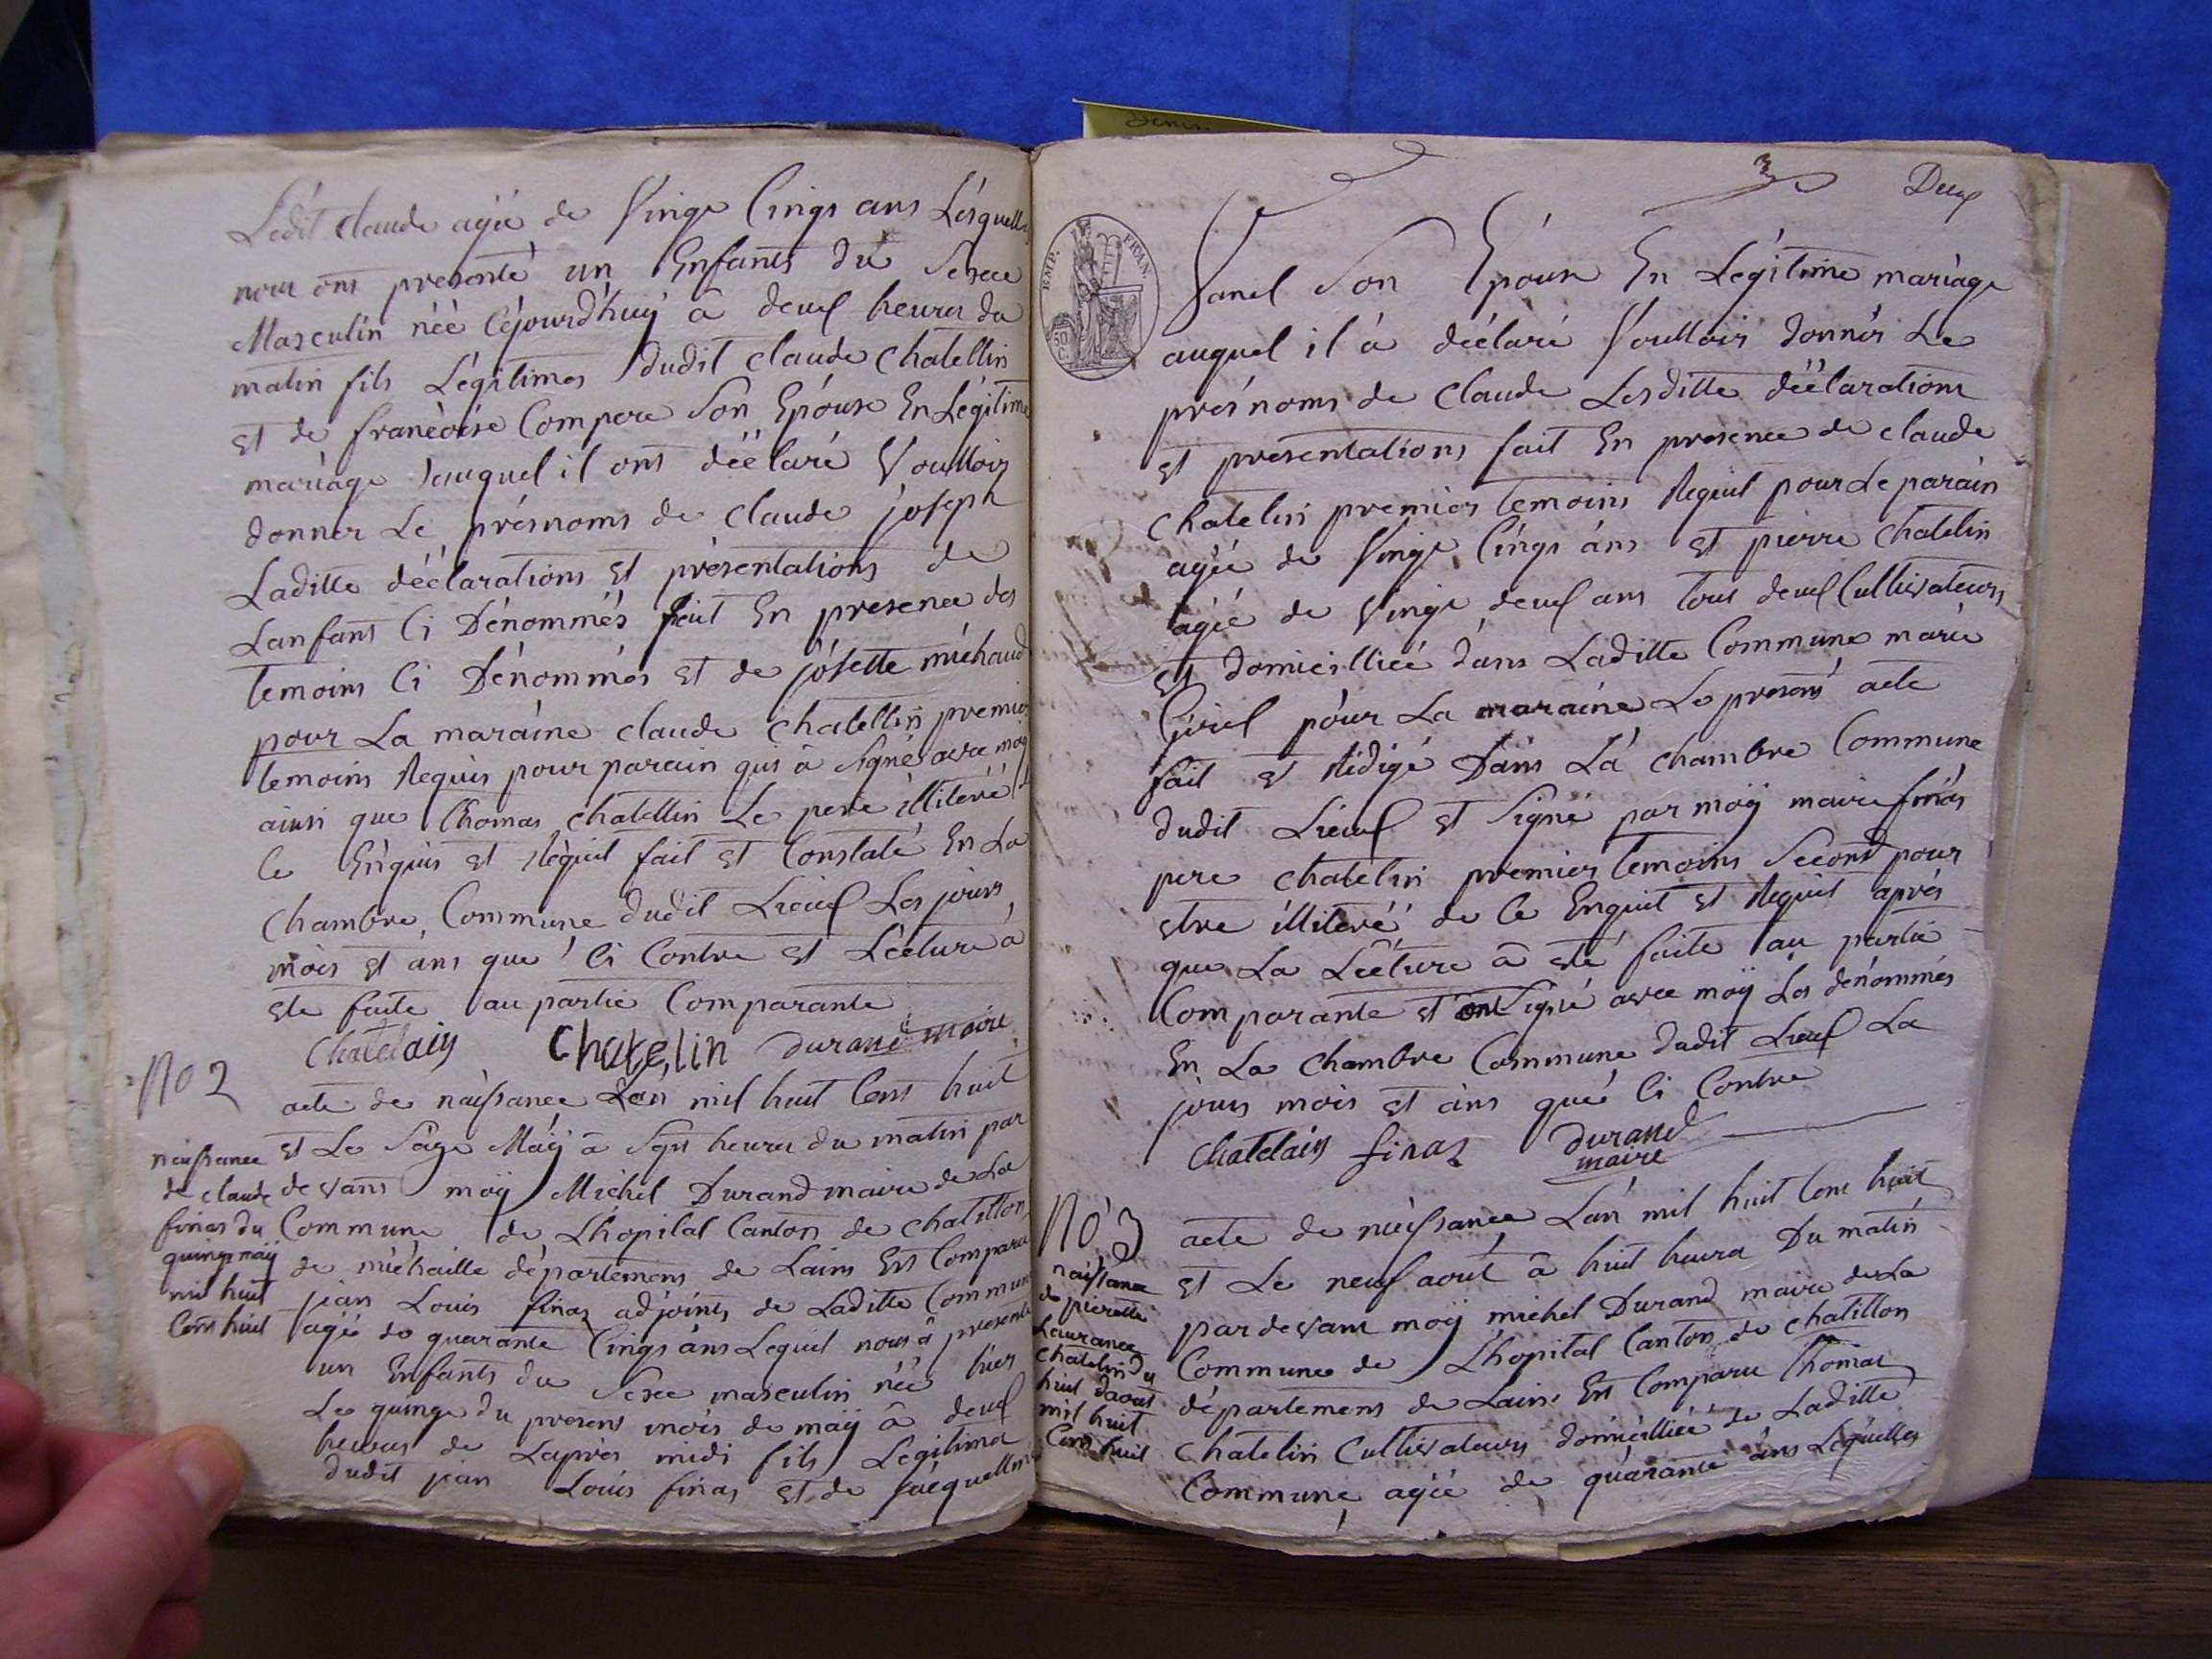 Lédit claude agée de Vinge Cings ans Lésquells
nous ont presenté un Enfants du Sexce
Masculin néé Céjourdhuÿ a deux heures du
matin fils Légitimes dudit claude chatellin
et de francoise Compere Son Epouse En Légitime
mariage auquel il ont déélaré Voulloir
donner Le présnoms de claude joseph
Laditte déclarations et présentations de
Lanfant Ci Dénommés fait En presence des
temoins Ci Dénommés et de josette michaud
pour La maraine claude chatellin premier
temoins Requis pour parain qui à Signé avec moÿ
ainsi que Thomas chatellin Le pere illiteré
Ce Enquis et Requit fait et Constaté En La
Chambre Commune dudit Lieux Les jours
mois et ans que Ci Contre et Lééture a
été faite au partie Comparante
Chatelain Chatelin durand maire
No 2
acte de naissance Lan mil huit Cens huit
et Le Sàze Maÿ a Sept heures du matin par
devans moÿ Michel Durand maire de La
Commune de Lhopital Canton de chatillon
de michaille département de Lains Est Comparu
jean Louis finas adjoints de Laditte Commune
agée de quarante Cings ans Lequel nous à presenté
un Enfants du Sexce masculin néé hier
Le quinze du presens mois de maÿ à deux
heures de Lapres midi fils Légitime
dudit jean Louis finas et de Jacquelline
naissance
de claude
finas du
quinze maÿ
mil huit
Cens huit
3 Deux
EMP. FRAN.
50 C.
Janel Son Epouse En Légitime mariage
auquel il à déélaré Voulloir donnér Le
présnoms de Claude Lesditte déélarations
et presentations fait En presence de claude
Chatelin premier temoins Requit pour Le parain
agée de Vinge Cings ans et pierre Chatelin
agée de Vinge deux ans tous deux Cultivateurs
et domicilliéé dans Laditte Commune marie
pour La maraine Le present acte
fait et Rédigé Dans Là chambre Commune
dudit Lieux et Signé par moÿ maire finas
pere chatelin premier temoins Second pour
etre illiteré de Ce Enquit et Requit aprés
que La Lééture à eté faite au partie
Comparante et ont Signé avec moÿ Les dénommés
En La Chambre Commune dudit Lieux La
jours mois et ans qué Ci Contre
Chatelain finas durand
maire
No 3
acte de naissance Lan mil huit Cens huit
et Le neuf août à huit heures Du matin
par devant moÿ michel Durand maire de La
Commune de Lhopital Canton de chatillon
département de Lains Est Comparu Thomas
chatelin Cultivateurs domicilliéé de Laditte
Commune agée de quarante ans Lequelles
naissance
de pierrette
Laurance
Chatelin du
huit daout
mil huit
Cens huit